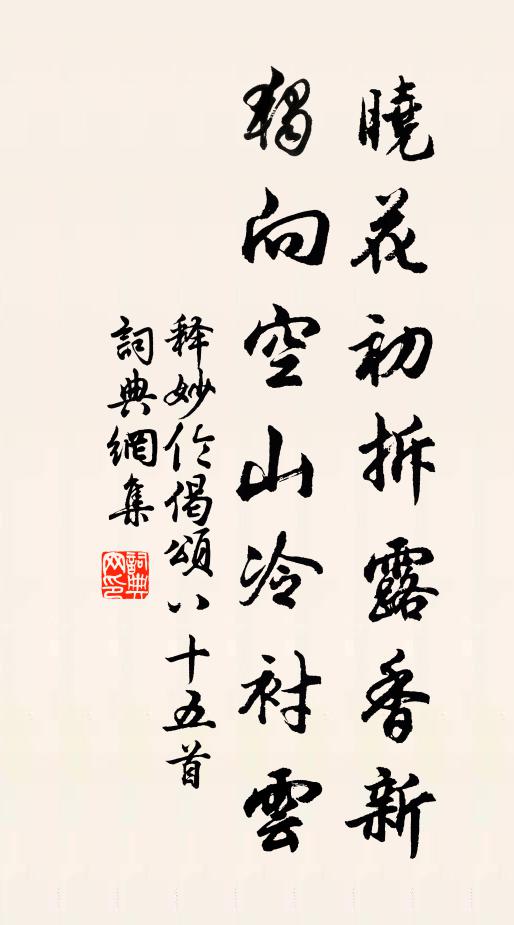 曉花初拆露香新
獨向空山冷衬雲
释妙伦偈頌八十五首
詞典網集
詞典網印